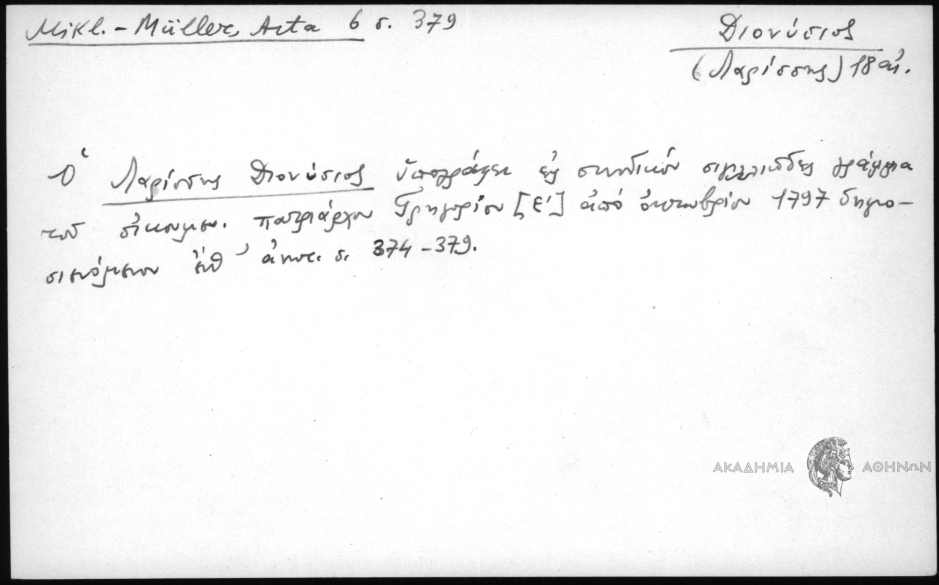 Mikl.-Müller, Acta 6 σ. 379
Διονύσιος
(Λαρίσσης) 18 αἰ.
Ὁ Λαρίσσης Διονύσιος ὑπογράφει εἰς συνοδικόν σιγιλλιῶδες γράμμα
τοῦ οἰκουμεν. πατριάρχου Γρηγορίου [Ε'] ἀπό ὀκτωβρίου 1797 δημο-
σιευόμενον ἐνθ' ἀνωτ. σ. 374-379.
ΑΚΑΔΗΜΙΑ ΑΘΗΝΩΝ